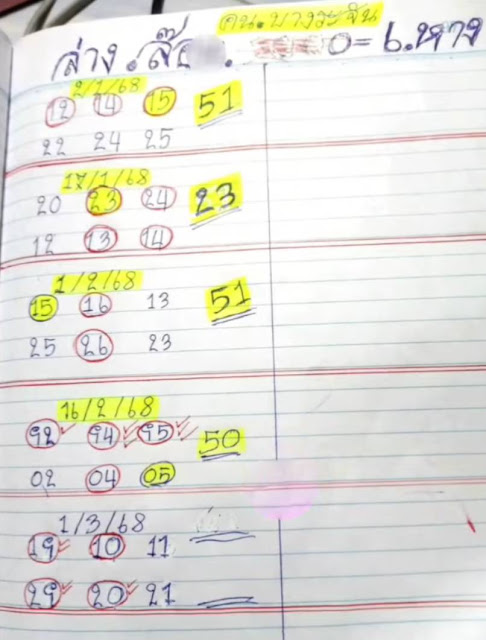 คน.บางระจัน
ล่าง. 0=6.หาง
2/1/68
12 14 15 51
22 24 25
17/1/68
20 23 24 23
12 13 14
1/2/68
15 16 13 51
25 26 23
16/2/68
92 94 95 50
02 04 05
1/3/68
19 10 11
29 20 21